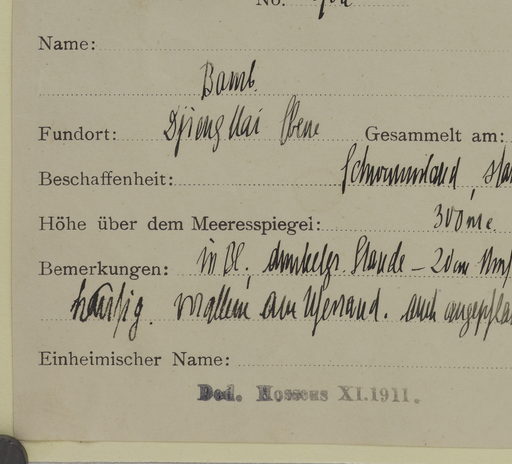 No.
Name:
Bamb.
Fundort: Djieng Hai Ebene Gesammelt am:
Beschaffenheit: Schwemmland,
Höhe über dem Meeresspiegel: 300 m.
Bemerkungen: in Bl. dunkelgr. Staude – 20 m
häufig. vor allem am Uferrand. auch
Einheimischer Name:
Ded. Hosseus XI.1911.